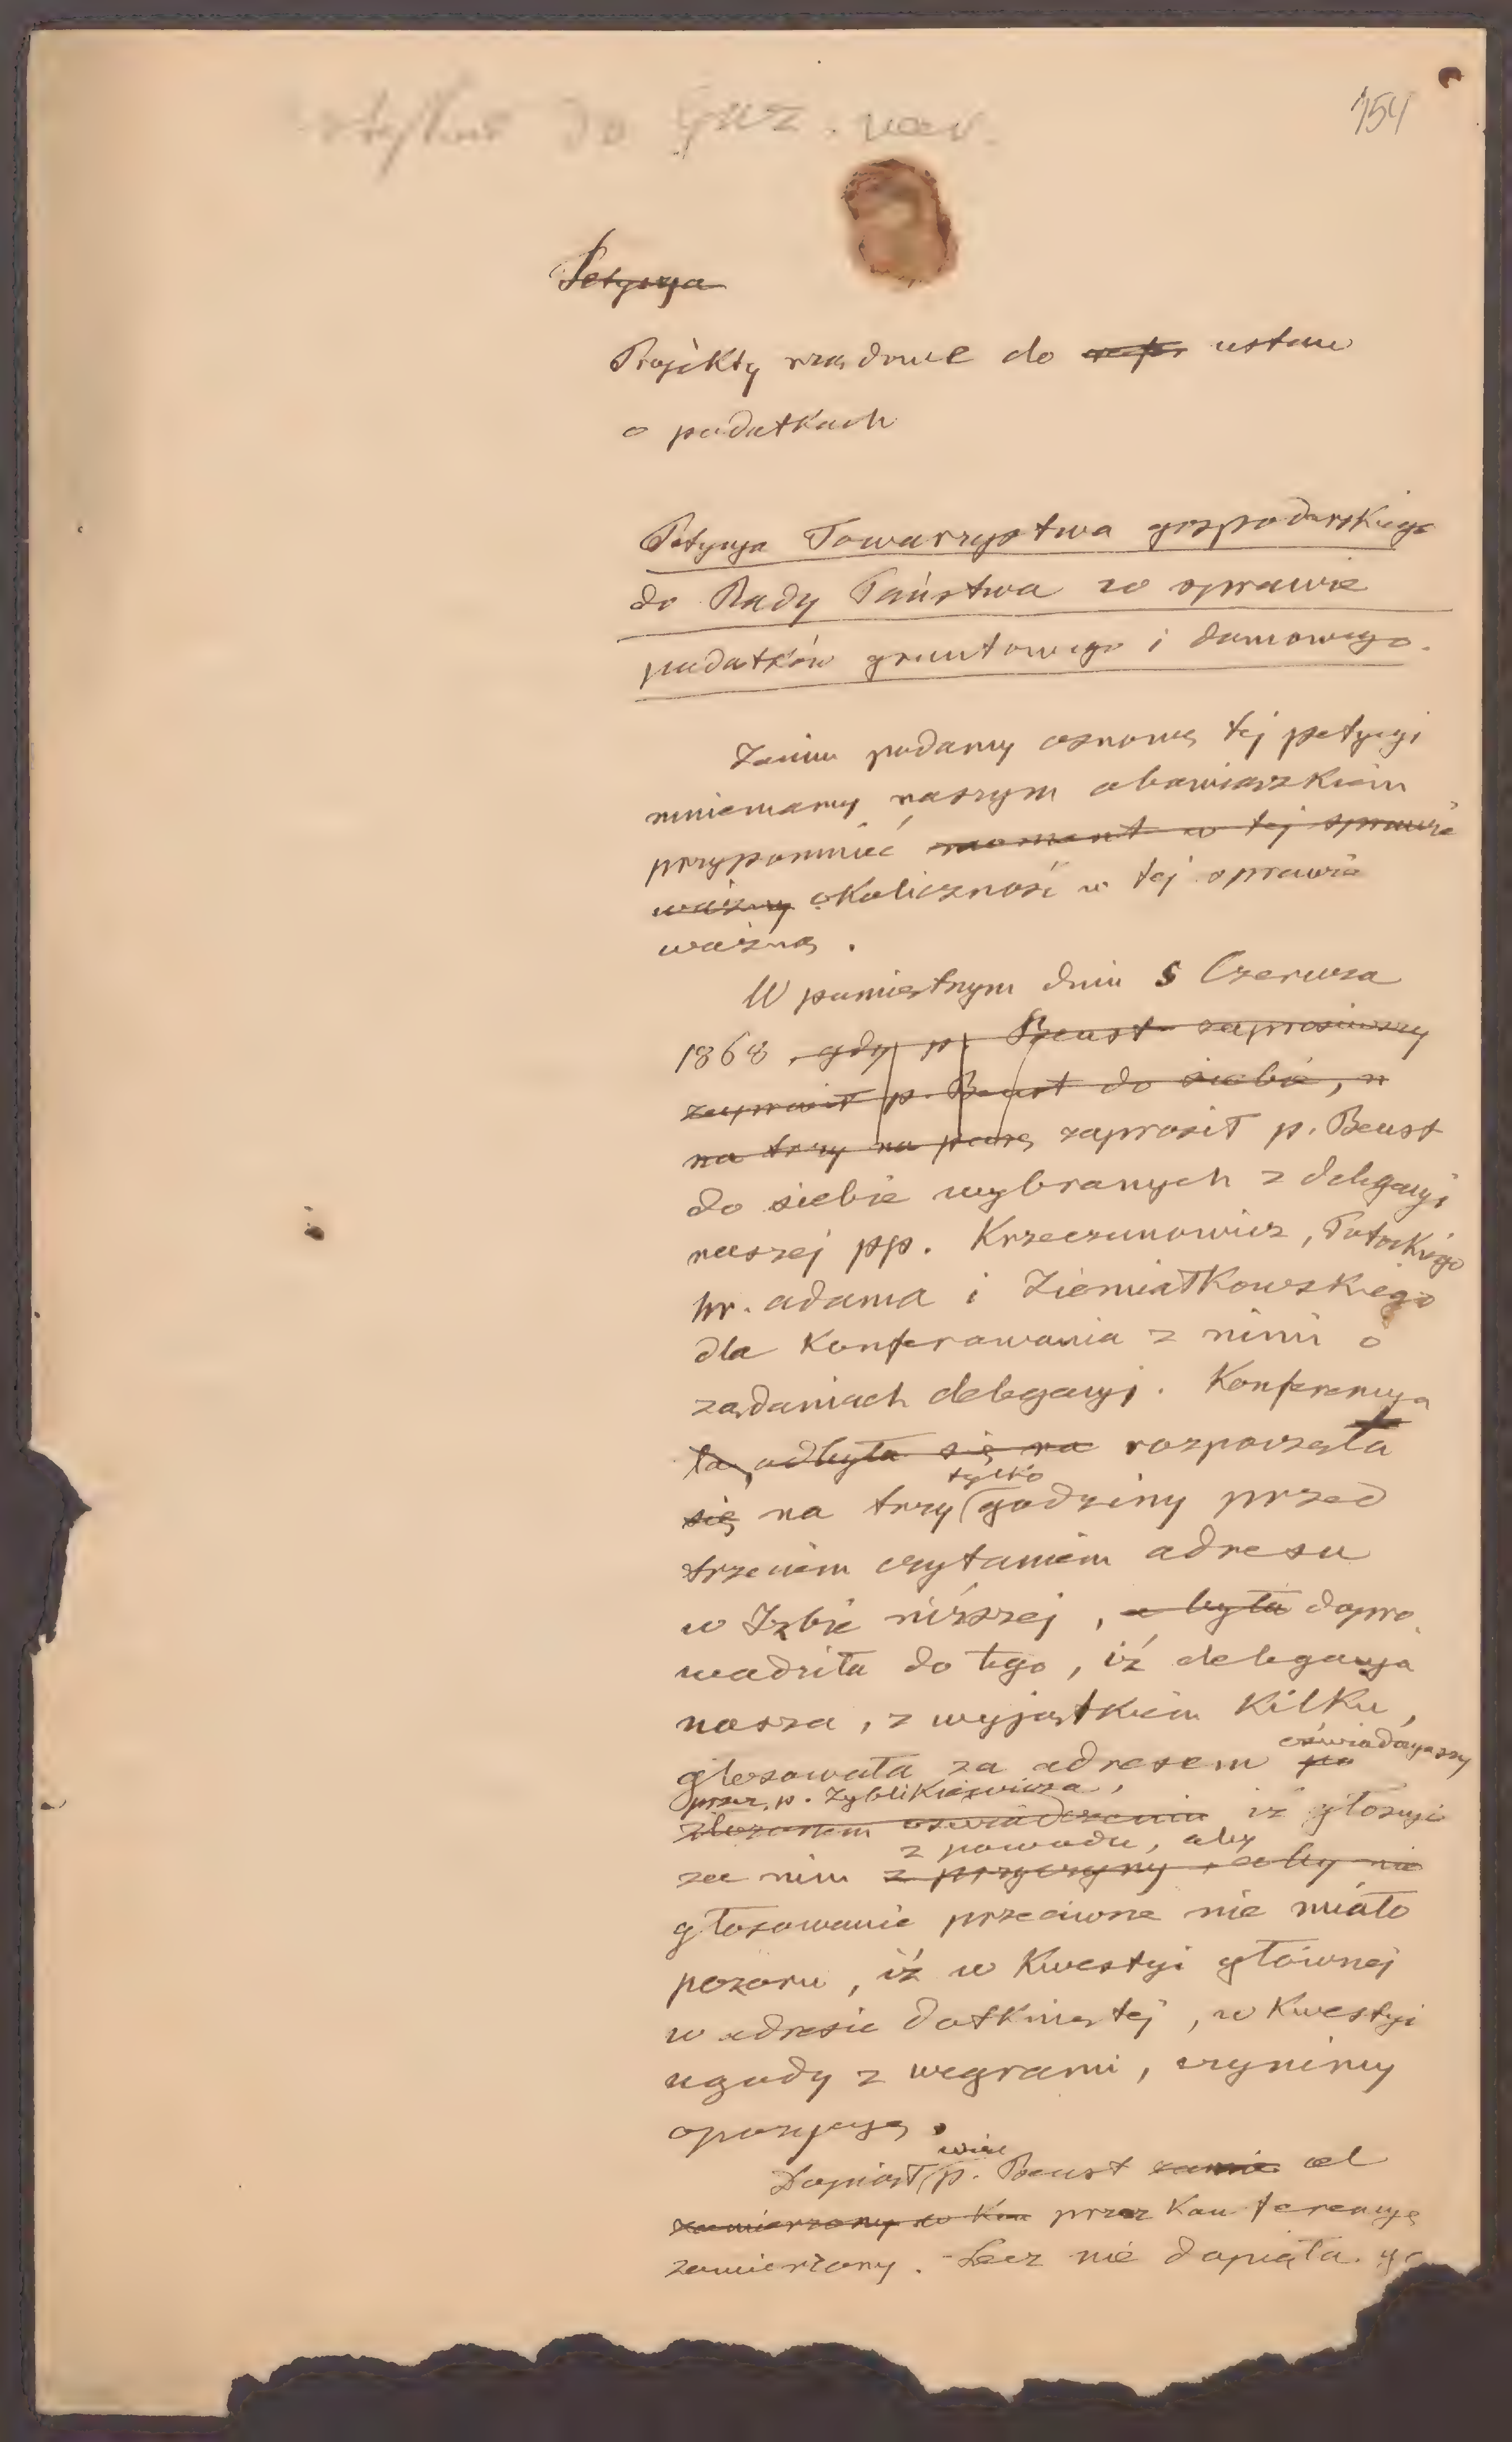 do Gaz. nar.
154
Petycya
Projekty rządowe do ustaw
o podatkach
Petycya Towarzystwa gospodarskiego
do Rady Państwa w sprawie
podatków gruntowego i domowego.
Zanim podamy osnowę tej petycyi
mniemamy naszym obowiązkiem
przypomnieć moment w tej sprawie
ważny okoliczność w tej sprawie
ważną.
W pamiętnym dniu 5 Czerwca
1868, gdy p. Beust zaprosiwszy
zaprosił p. Beust do siebie, n
na trzy na parę zaprosił p. Beust
do siebie wybranych z delegacyi
naszej pp. Krzeczunowicz, Potockiego
hr. adama i Ziemiałkowskiego
dla Konferowania z nimi o
żądaniach delegacyi. Konferencya
ta, odbyła się na rozpoczęła
się na trzy tylko godziny przed
trzeciem czytaniem adresu
w Izbie niższej, a była dopro
wadziła do tego, iż delegacya
nasza, z wyjątkiem Kilku,
głosowała za adresem po oświadczywszy
przez p. Zyblikiewicza,
złożonem oświadczeniu iż głosuje
z powodu, aby
za nim z przyczyny, aby nie
głosowanie przeciwne nie miało
pozoru, iż w Kwestyi głównej
w adresie dotkniętej, w Kwestyi
ugody z węgrami, czynimy
opozycyę.
Dopiął więc p. Beust cel
zamierzony w Kon przez Konferencyę
zamierzony. - Lecz nie dopięła